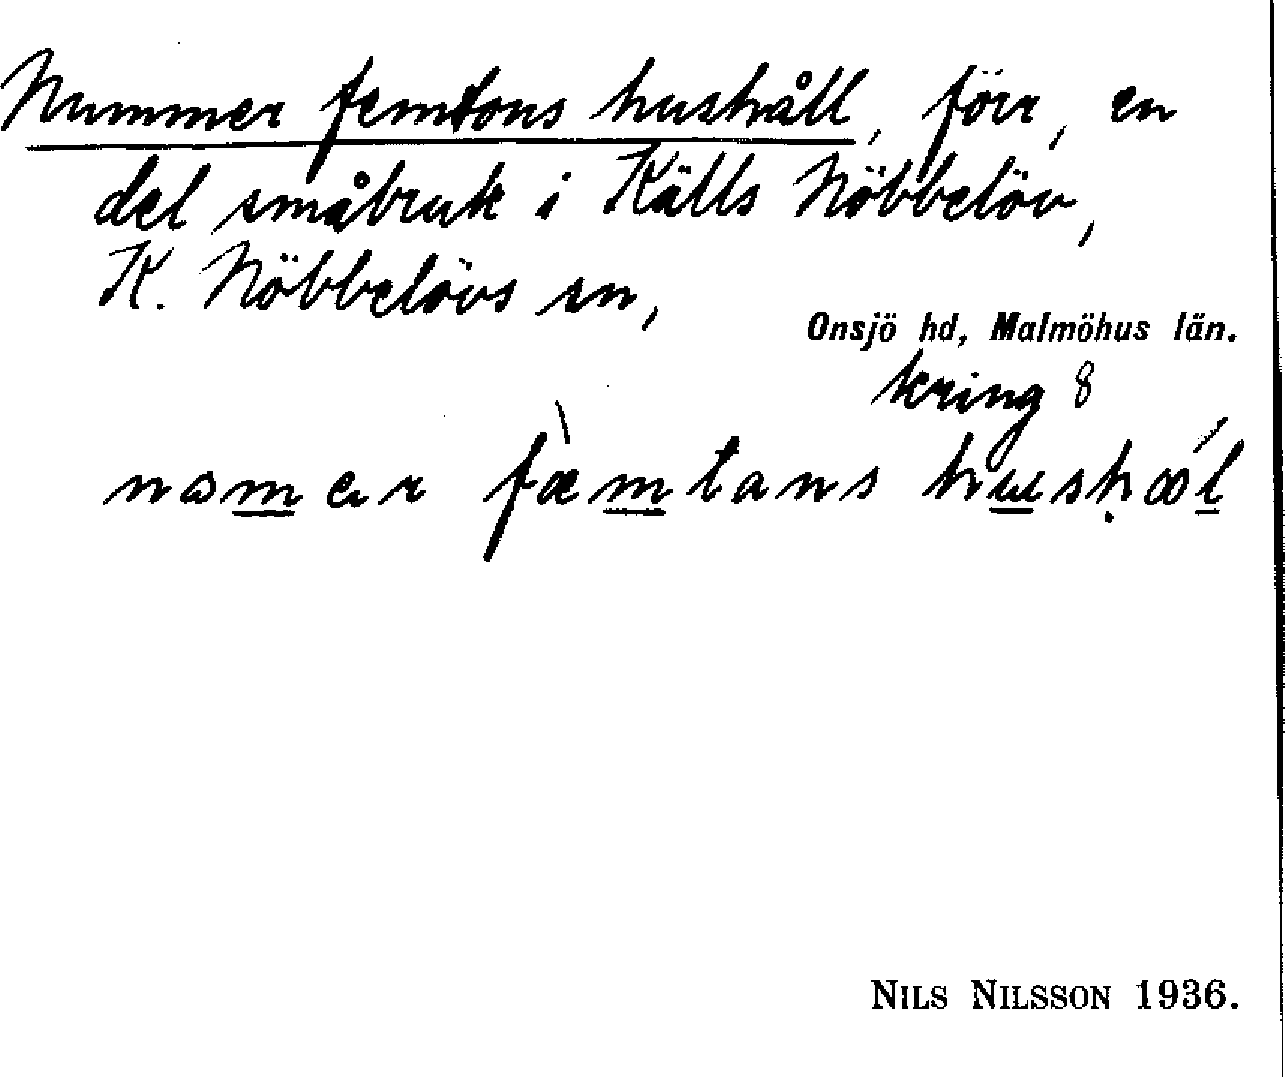 Nummer femtons hushåll, förr, en
del småbruk i Källs Nöbbelöv,
K. Nöbbelövs sn,
Onsjö hd, Malmöhus län.
kring 8
nɷmer fæ̀mtans husḥꝏ́l
NILS NILSSON 1936.